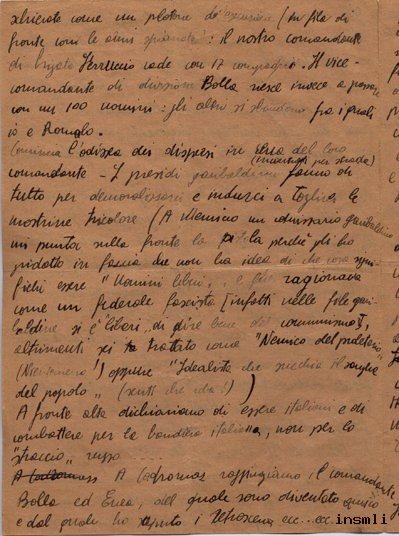 come un plotone di esecuzione (In fila di
fronte con le armi spianate): il nostro comandante
di brigata Ferruccio cade con 17 compagni. Il vice-
comandante di divisione Bolla riesce invece a passare
con un 100 uomini: gli altri si sbandano fra i quali
io e Romolo.
Comincia l'odissea dei dispersi in cerca del loro
(rimasugli per strada)
comandante - I presidi garibaldini fanno di
tutto per demoralizzarci e indurci a togliere le
mostrine tricolore (A Nemino un commissario garibaldino
mi punta sulla fronte la pistola perché gli ho
gridato in faccia che non ha idea di che cosa signi-
fichi essere "Uomini liberi", e che ragionava
come un federale fascista [infatti nelle file gari-
baldine si è "liberi" di dire bene del comunismo],
altrimenti sei trattato come "Nemico del proletario"
oppure "Idealista che succhia il sangue
del popolo" (senti che idea!)
A fronte alta dichiariamo di essere italiani e di
combattere per la bandiera italiana, non per lo
"straccio" russo
A raggiungiamo il comandante
Bolla ed Enea, del quale sono diventato amico
e dal quale ho saputo i retroscena ecc... ecc...
insmli